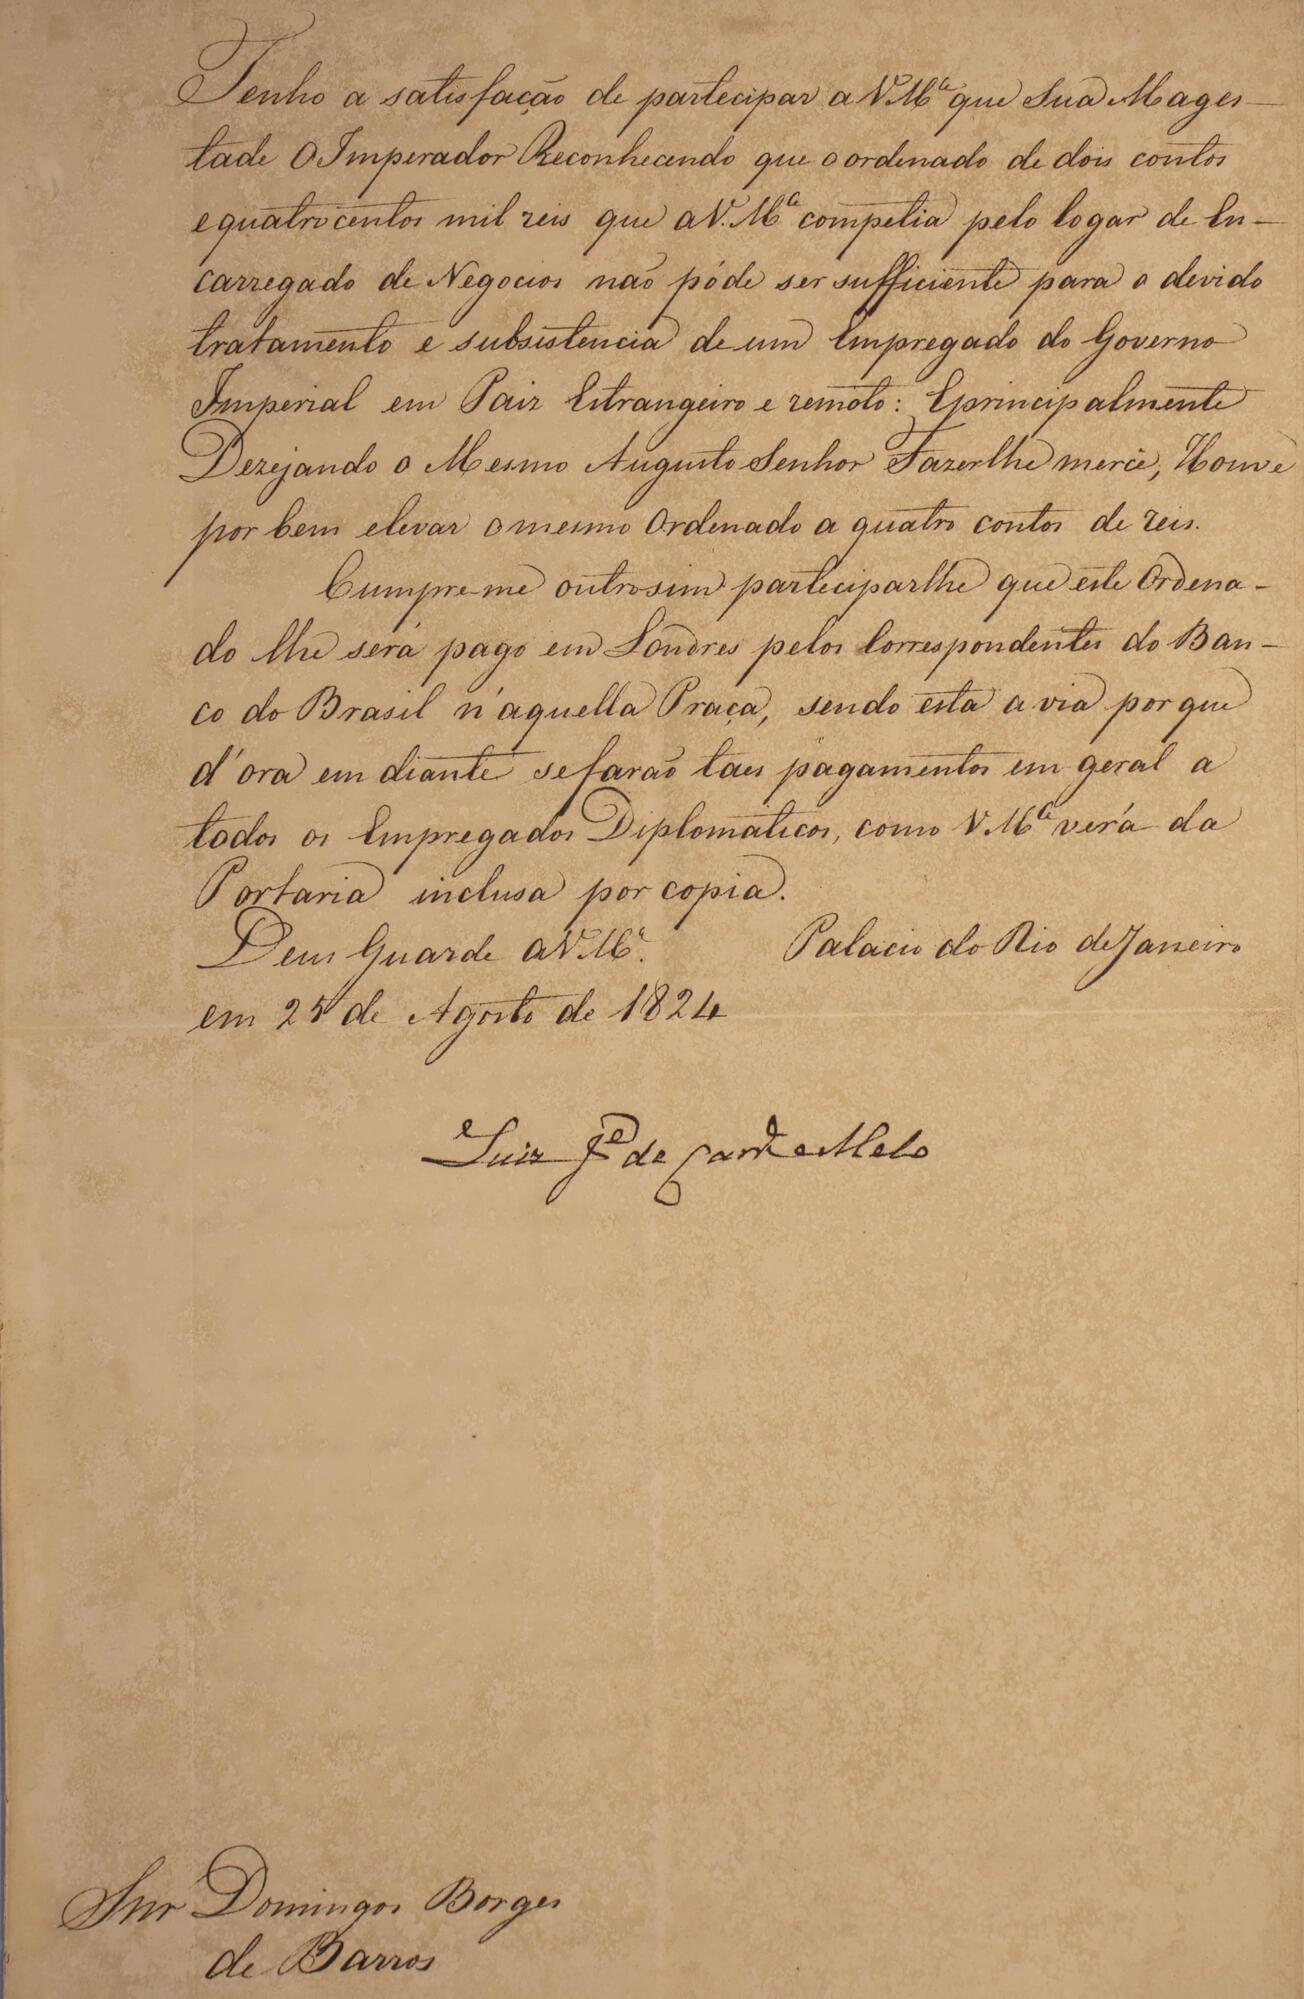 Tenho a satisfação de partecipar a V. M.ce que Sua Mages-
tade O Imperador Reconhecendo que o ordenado de dois contos
e quatro centos mil reis que a V. M.ce competia pelo logar de En-
carregado de Negocios não póde ser sufficiente para o devido
tratamento e subsistencia de um Empregado do Governo
Imperial em Paiz Estrangeiro e remoto: E principalmente
Dezejando o Mesmo Augusto Senhor Fazer lhe mercê, Houve
por bem elevar o mesmo Ordenado a quatro contos de reis.
Cumpre-me outrosim partecipar lhe que este Ordena-
do lhe será pago em Londres pelos Correspondentes do Ban-
co do Brasil n'aquella Praça, sendo esta a via por que
d'ora em diante se farão taes pagamentos em geral a
todos os Empregados Diplomaticos, como V. M.ce verá da
Portaria inclusa por copia.
Deus Guarde a V. M.ce Palacio do Rio de Janeiro
em 25 de Agosto de 1824
Luiz Je. de Carvo. e Melo
Snr Domingos Borges
de Barros